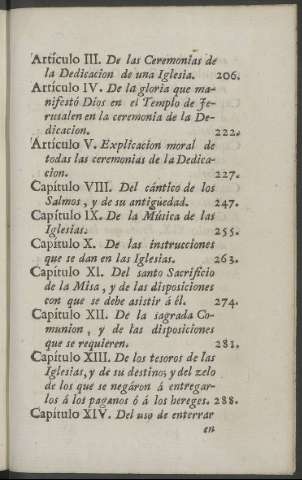 Artículo III. De las Ceremonias de
la Dedicacion de una Iglesia. 206.
Artículo IV. De la gloria que ma-
nifestó Dios en el Templo de Je-
rusalen en la ceremonia de la De-
dicacion. 222.
Artículo V. Explicacion moral de
todas las ceremonias de la Dedica-
cion. 227.
Capítulo VIII. Del cántico de los
Salmos, y de su antigüedad. 247.
Capítulo IX. De la Música de las
Iglesias. 255.
Capítulo X. De las instrucciones
que se dan en las Iglesias. 263.
Capítulo XI. Del santo Sacrificio
de la Misa, y de las disposiciones
con que se debe asistir á él. 274.
Capítulo XII. De la sagrada Co-
munion, y de las disposiciones
que se requieren. 281.
Capítulo XIII. De los tesoros de las
Iglesias, y de su destino; y del zelo
de los que se negáron á entregar-
los á los paganos ó á los hereges. 288.
Capítulo XIV. Del uso de enterrar
en